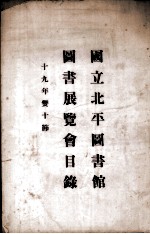 國立北平圖書館
圖書展覽會目錄
十九年雙十節